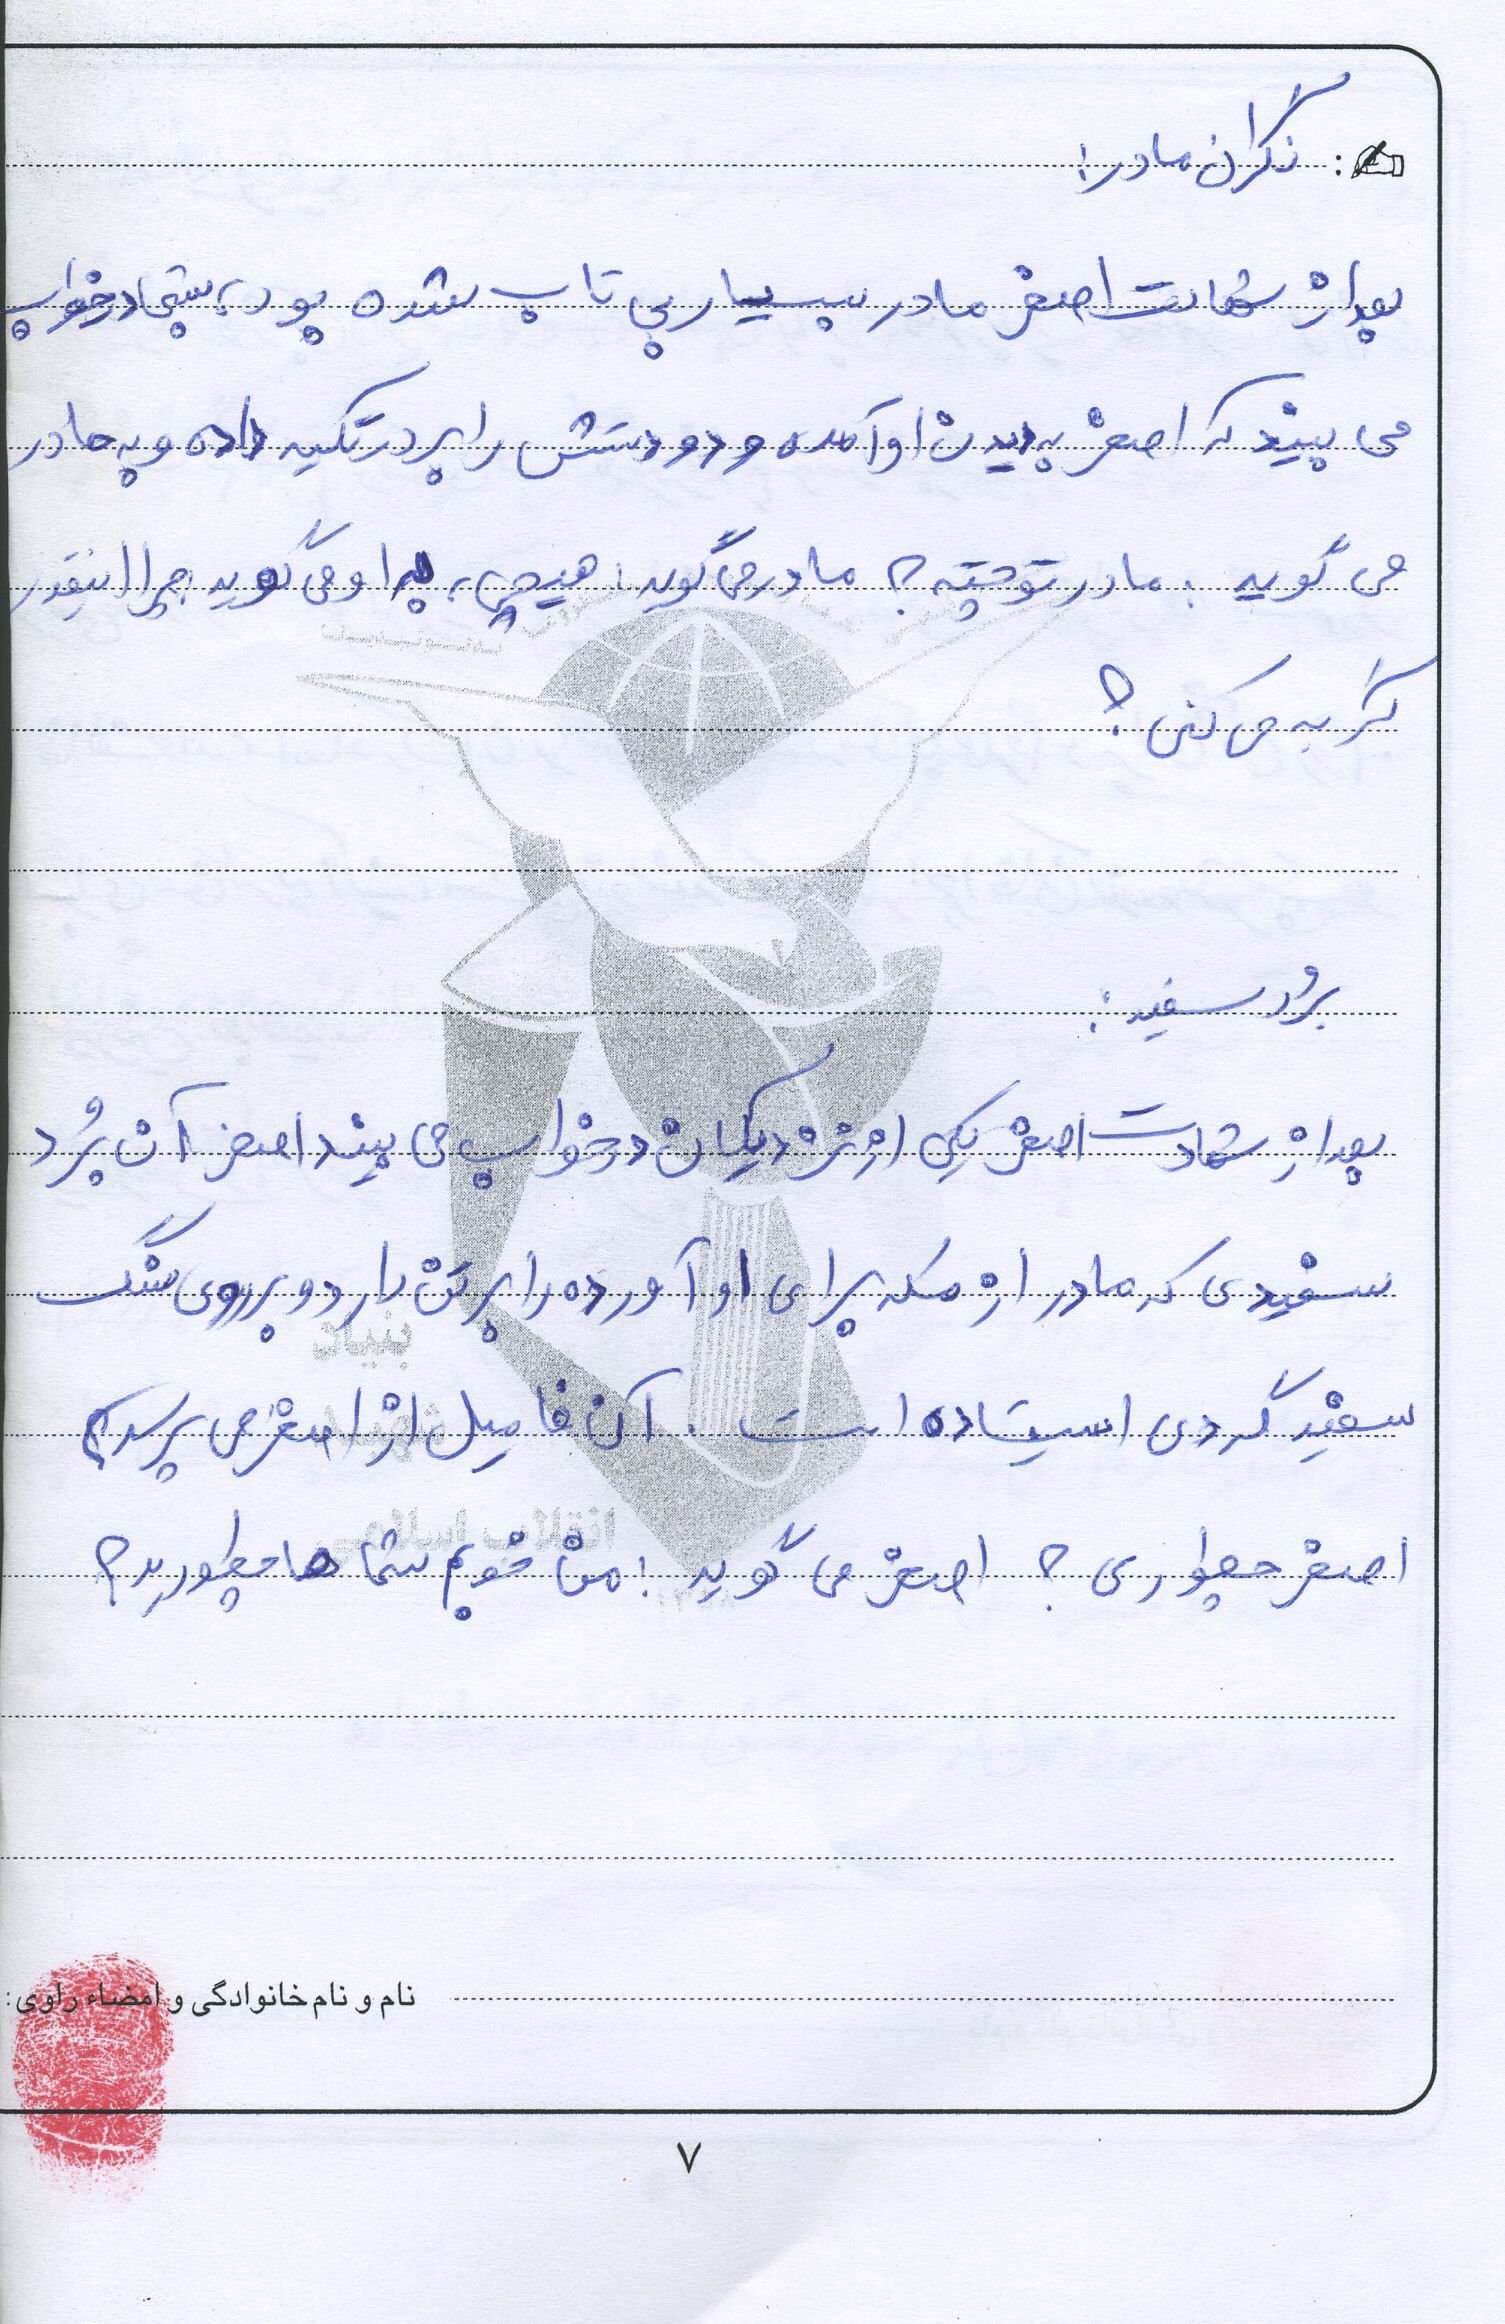 : نگران مادر:
بعد از شهادت اصغر مادر بسیار بی تاب شده بود، شبی در خواب
می بیند که اصغر به دیدن او آمده و دو دستش را بر در تکیه داده و به مادر
می گوید: مادر تو چته؟ مادر می گوید: هیچی، او می گوید چرا اینقدر
گریه می کنی؟
بُرد سفید:
بعد از شهادت اصغر یکی از نزدیکان در خواب می بیند اصغر آن بُرد
سفیدی که مادر از مکه برای او آورده را بر تن دارد و بر روی سنگ
سفید گردی ایستاده است. آن فامیل از اصغر می پرسد؟
اصغر چطوری؟ اصغر می گوید: من خوبم شما ها چطورید؟
نام و نام خانوادگی و امضاء راوی:
۷